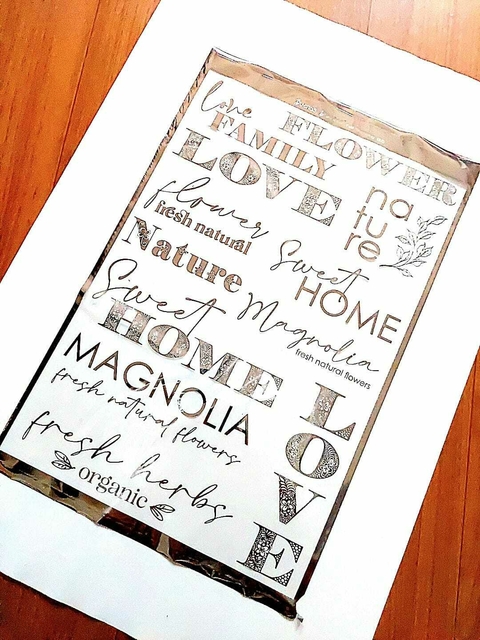 love
FLOWER
FAMILY
LOVE
na
tu
re
flower
fresh natural
Nature
Sweet
HOME
Sweet
Magnolia
fresh natural flowers
HOME
MAGNOLIA
fresh natural flowers
LOVE
fresh herbs
organic